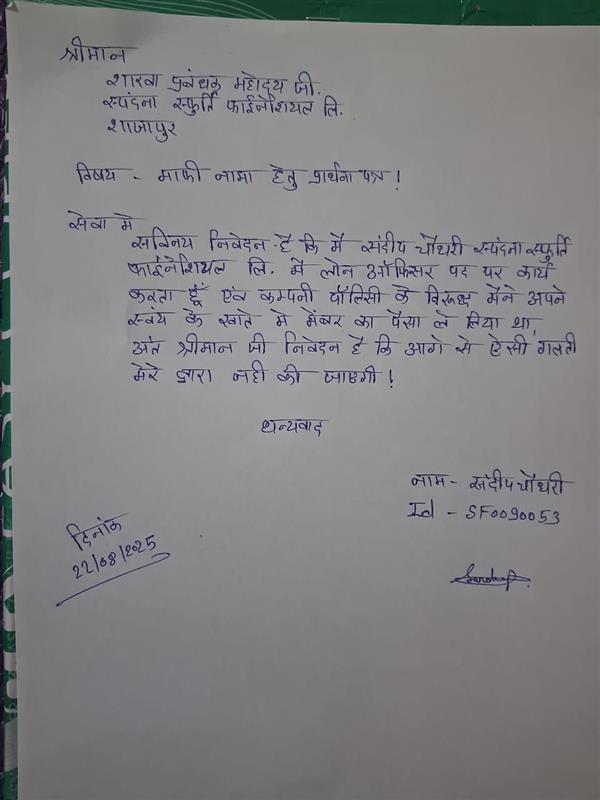 श्रीमान
शाखा प्रबंधक महोदय जी.
स्पंदना स्फुर्ति फाईनेंशियल लि.
शाजापुर
विषय - माफी नामा हेतु प्रार्थना पत्र !
सेवा मे
सविनय निवेदन है कि मै संदीप चौधरी स्पंदना स्फुर्ति
फाईनेंशियल लि. में लोन ऑफिसर पद पर कार्य
करता हूँ एवं कम्पनी पॉलिसी के विरूद्ध मैने अपने
स्वंय के खाते मे मेंबर का पैसा ले लिया था,
अंत श्रीमान जी निवेदन है कि आगे से ऐसी गलती
मेरे द्वारा नही की जाएगी !
धन्यवाद
नाम - संदीप चौधरी
Id - SF0090053
दिनांक
22/08/2025
Sandeep